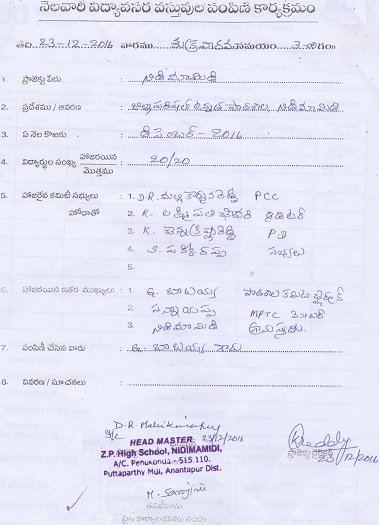 నెలవారీ విద్యావసర వస్తువుల పంపిణీ కార్యక్రమం
తేది 23-12-2016 వారము శుక్రవారము సమయం 3-00 గం॥
1. ప్రాజెక్టు పేరు : నిడిమామిడి
2. ప్రదేశము / ఆవరణ : జిల్లాపరిషత్ ఉన్నత పాఠశాల, నిడిమామిడి
3. ఏ నెల కొఱకు : డిసెంబర్ - 2016
4. విద్యార్థుల సంఖ్య హాజరయిన / మొత్తము : 20/20
5. హాజరైన కమిటీ సభ్యులు : 1. D.R. మల్లికార్జునరెడ్డి PCC
హోదాతో 2. R. లక్ష్మీపతి
3. K. చెన్నక్రిష్ణారెడ్డి PD
4. సభ్యులు
5.
6. హాజరయిన ఇతర ముఖ్యులు : 1. G. బాబయ్య పాఠశాల కమిటీ ఛైర్మన్
2. MPTC మెంబర్
3. నిడిమామిడి గ్రామస్తుడు.
7. పంపిణీ చేసిన వారు : G. బాబయ్య గారు
8. వివరణ / సూచనలు :
D.R. Mallikarjuna
23/12/2016
HEAD MASTER
Z.P. High School, NIDIMAMIDI,
A/C. Penukonda - 515 110.
Puttaparthy Mdl, Anantapur Dist.
KReddy
ప్రాజెక్ట్ డైరెక్టర్
23/12/2016
M. Sarojini